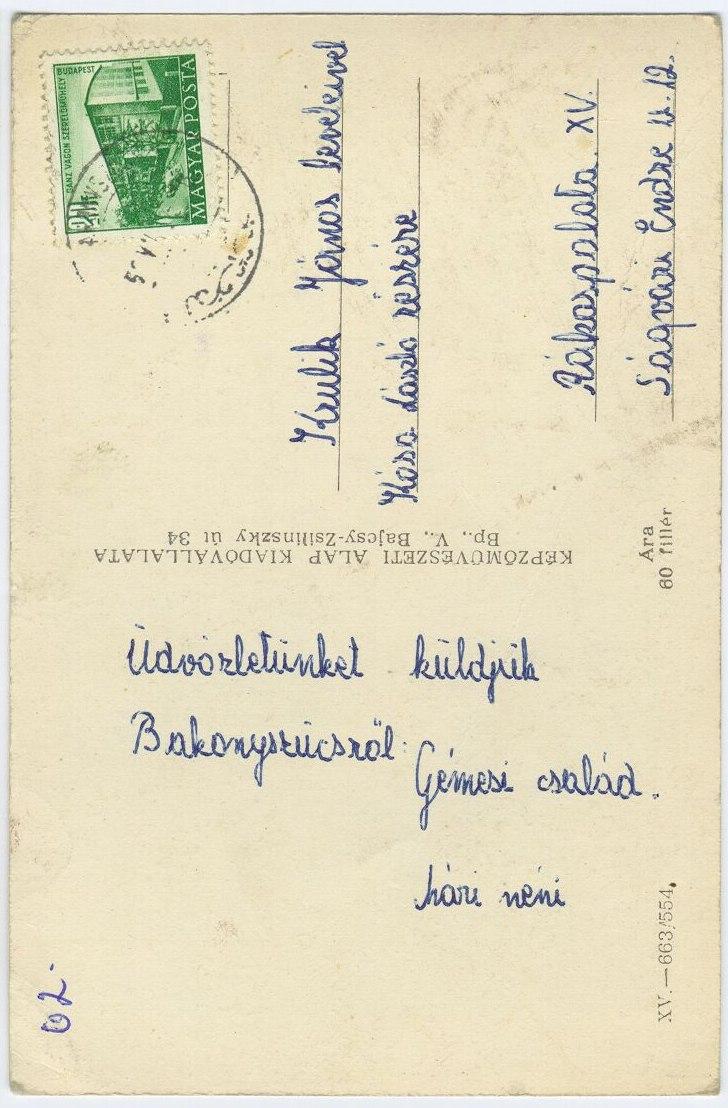 Üdvözletünket küldjük
Bakonyszücsről
Gémesi család.
Mári néni
62.
Krulik János leveleivel
Kósa László részére
Rákospalota XV.
Ságvári Endre u. 12.
KÉPZŐMŰVÉSZETI ALAP KIADÓVÁLLALATA
Bp., V., Bajcsy-Zsilinszky út 34
Ára
60 fillér
XV.—663/554.
BUDAPEST
GANZ VAGON SZERELŐMŰHELY
MAGYAR POSTA
20f